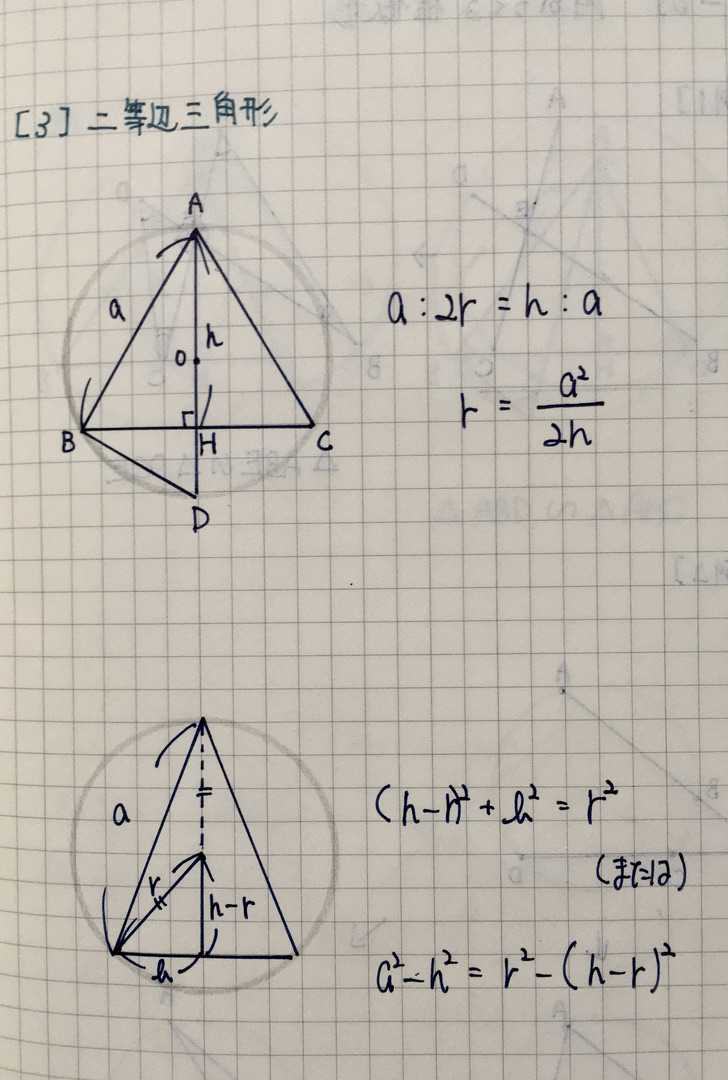 [3] 二等辺三角形
A
a
h
O
B
H
C
D
a : 2r = h : a
r = a² / 2h
a
r
h-r
b
(h-r)² + b² = r²
(または)
a² - h² = r² - (h-r)²